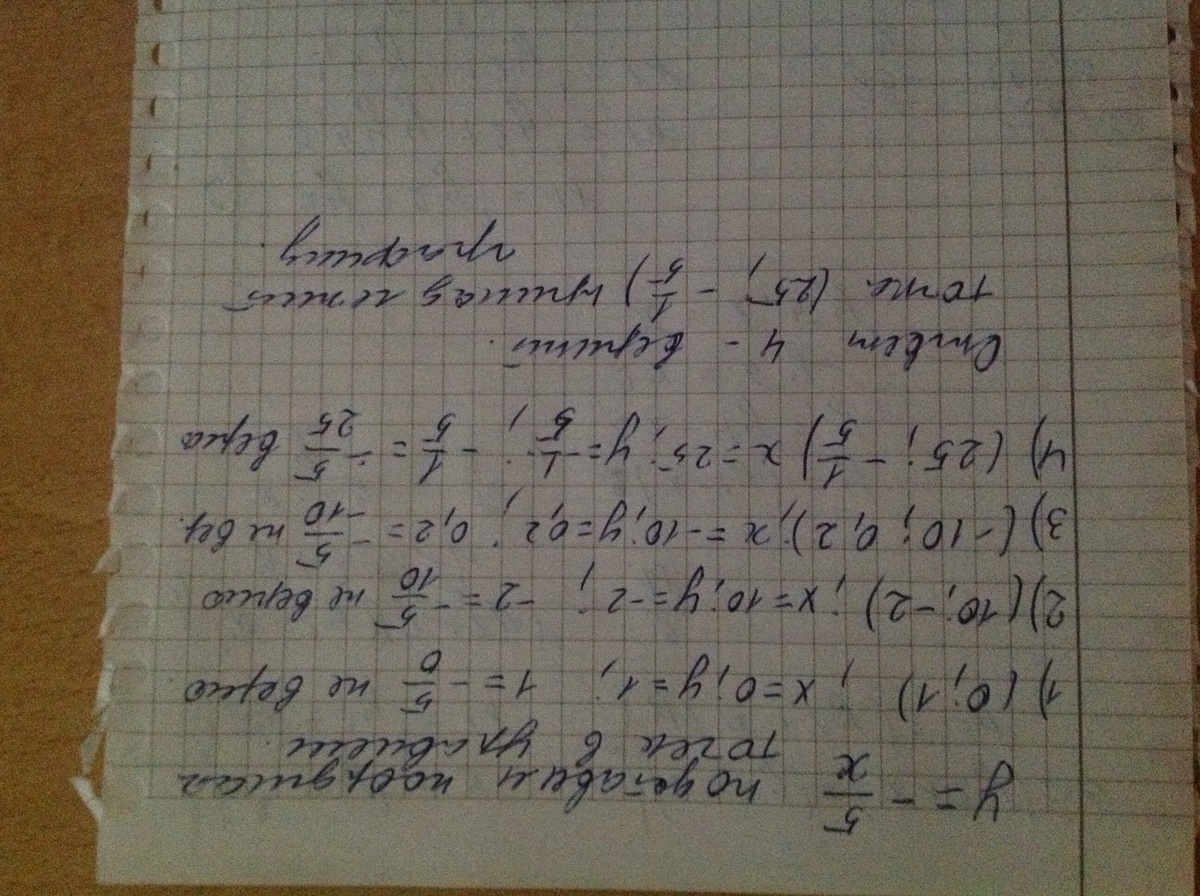 y = - 5/x подставим координат
точек в уравнени
1) (0; 1) ; x=0; y=1; 1 = - 5/0 не верно
2) (10; -2) ; x=10; y=-2; -2 = - 5/10 не верно
3) (-10; 0,2); x=-10; y=0,2; 0,2 = - 5/-10 не вер.
4) (25; - 1/5) x=25; y=- 1/5; - 1/5 = - 5/25 верно
Ответ 4 -
точка (25; - 1/5)
графику